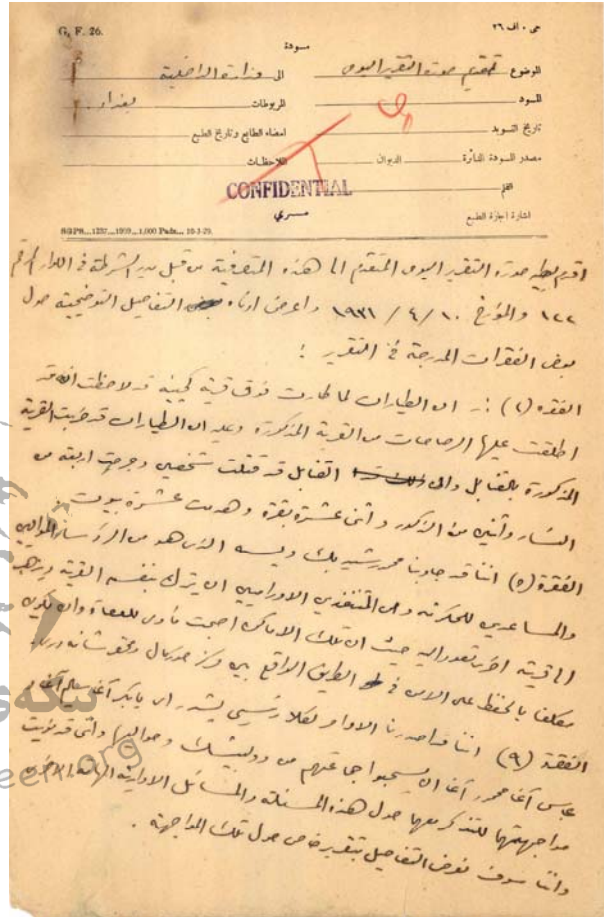 G. F. 26.
حى ٠ اف ٢٦
مسودة
الموضوع تقديم صورة التقرير اليومى
الى وزارة الداخلية
المسود
المربوطات بغداد.
تاريخ التسويد
امضاء الطابع وتاريخ الطبع
مصدر المسودة المتأثرة الديوان
الملاحظات
القلم
CONFIDENTIAL
سري
اشارة اجازة الطبع
SGPS...1237...1909...1,000 Pads... 10-3-29.
اقدم بطيه صورة التقرير اليومى المتقدم الى هذه المتصرفية من قبل مدير الشرطة في اللواء المرقم
١٢٢ والمؤرخ ١٠ / ٤ / ١٩٣١ واعرض ادناه التفاصيل التوضيحية حول
بعض الفقرات المدرجة في التقرير :
الفقرة : ان الطيارات لما طارت فوق قرية قد لاحظت انه قد
اطلقت عليها الرصاصات من القرية المذكورة وعليه ان الطيارات قد ضربت القرية
المذكورة بالقنابل وان القنابل قد قتلت شخصين وجرحت اربعة من
النساء واثنين من الذكور واثنى عشرة بقرة وهدمت عشرة بيوت.
الفقرة (٥) اننا قد جاوبنا محمد رشيد بك الذى هو من الرؤساء الموالين
والمساعدين للحكومة ومن المتنفذين الاوراميين ان يترك بنفسه القرية
الى قرية اخرى حيث ان تلك الاماكن اصبحت مأوى للعصاة وان يكون
مكلفا بالحفظ على الامن في الطريق الواقع بين مركز
الفقرة (٩) اننا قد اصدرنا الاوامر لكلا رئيسي بشدر اى بابكر آغا سليم آغا و
عباس آغا محمود آغا ان يسحبوا جماعتهم من وحواليها واننى قد نويت
مواجهتهما للتذكر معهما حول هذه المسئلة والمسائل الادارية الهامة الاخرى
واننا سوف نعرض التفاصيل بتقرير خاص حول تلك المواجهة.